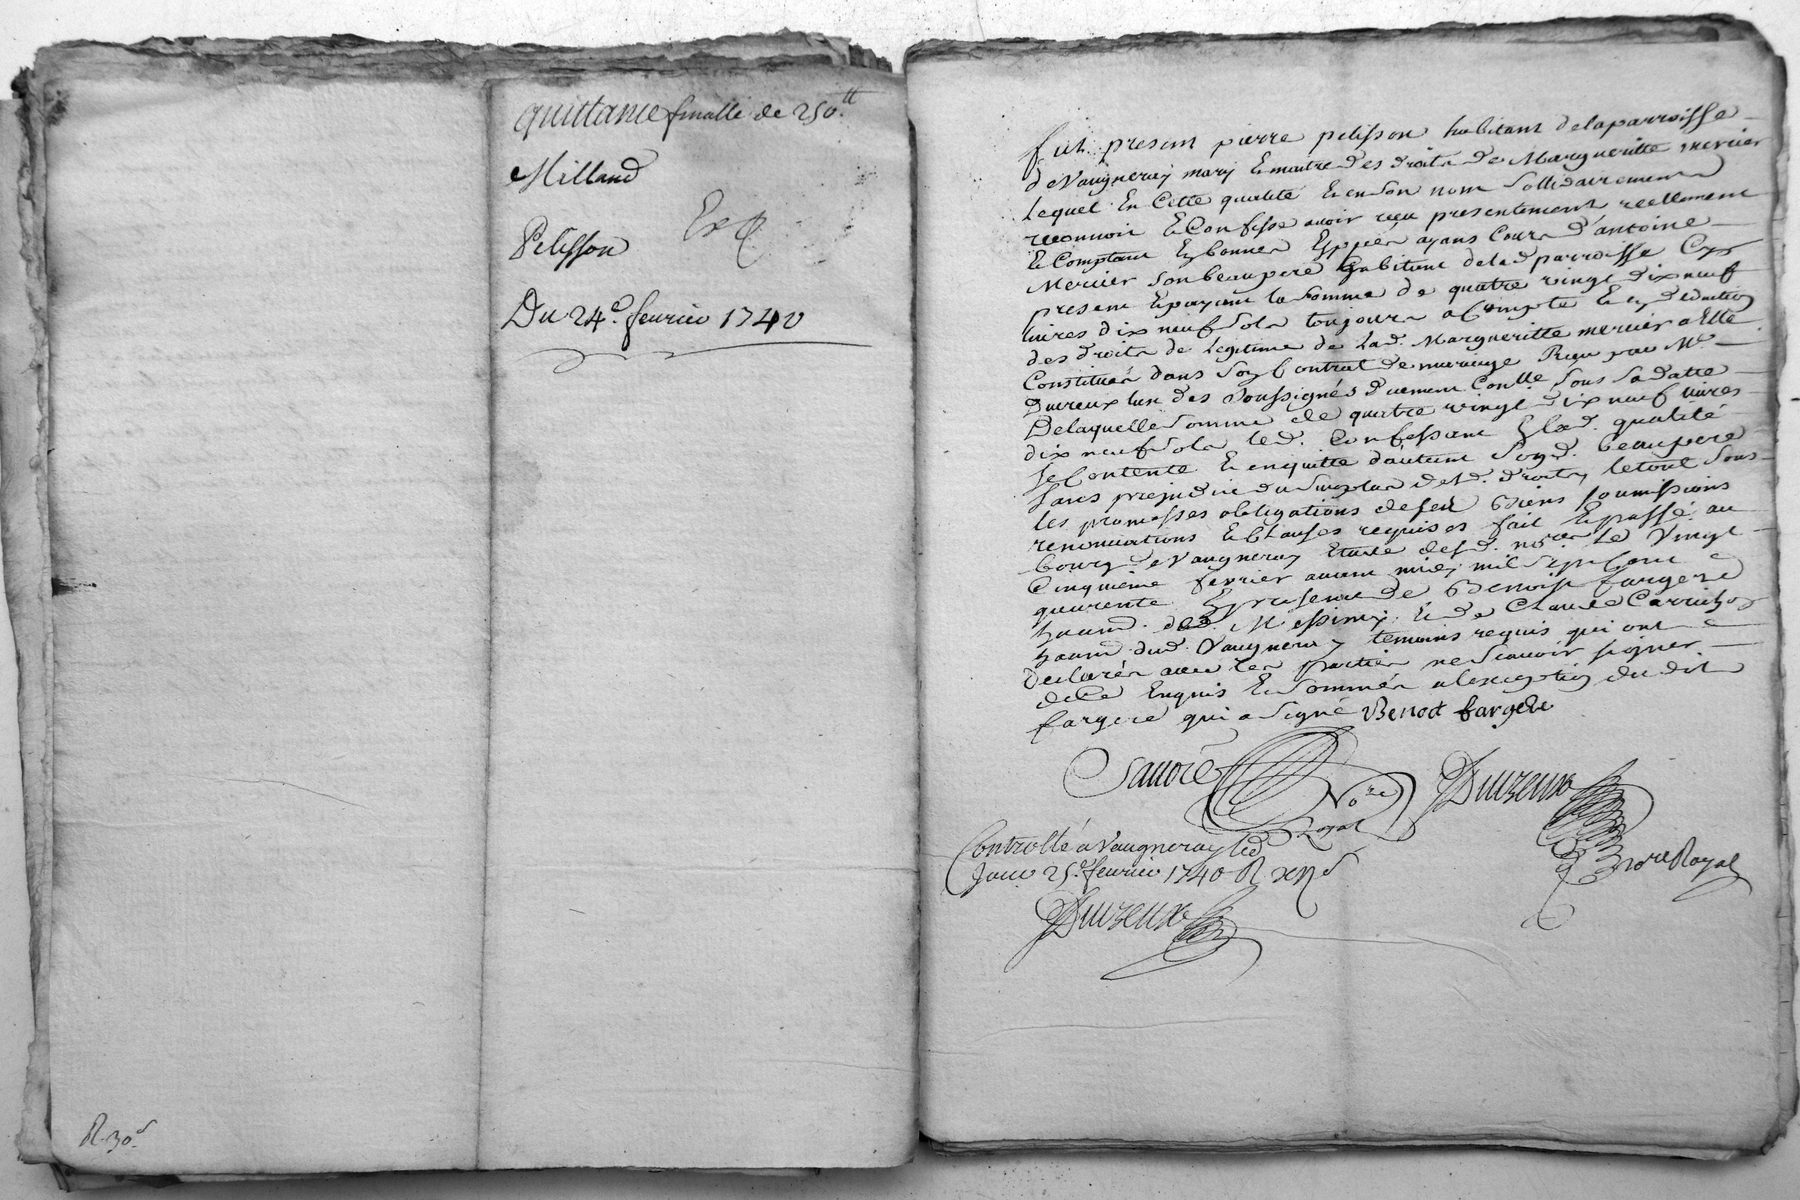 quittance finalle de 250.tt
Milland
Exp
Pelisson
Du 24e. feurier 1740
R. 30s
fut present pierre pelisson habitant delaparroisse
deVaugneray mary Et maitre des droits de Margueritte mercier
Lequel En Cette qualité Et en son nom sollidairement
reconnoit Et Confesse avoir reçu presentement reellement
Et Comptant En bonnes Especes ayans Cours d'antoine
Mercier son beaupere habitant delad parroisse Cy
present Et payant la somme de quatre vingt dix neuf
livres dix neuf sols toujours a Compte Et en deduction
des droits de legitime de lad. Margueritte mercier a Elle
Constitués dans son Contrat de mariage Reçu par Me
Duvreux lun des soussignés duement Conllé sous sa datte
De laquelle somme de quatre vingt dix neuf livres
dix neuf sols led. Confessant Esd. qualité
se Contente Et enquitte d'autant sond. beaupere
sans prejudice du surplus desd. droits, letout sous
les promesses obligations de ses biens soumissions
renonciations Et Clauses requises fait Et passé au
bourg de Vaugneray Etude desd. nores Le Vingt
Cinquieme fevrier avant midy mil sept cent
quarente En presence de Benoist fargere
dud. Messimy, Et de Claude
dud. Vaugneray temoins requis qui ont
declarés avec les parties ne scavoir signer
de Ce Enquis Et sommés a lexception du dit
fargere qui a signé Benoit fargere
Sauoré Nore Royal
Duvreux nore Royal
Controllé a Vaugneray led
Jour 25e. feurier 1740 R
Duvreux